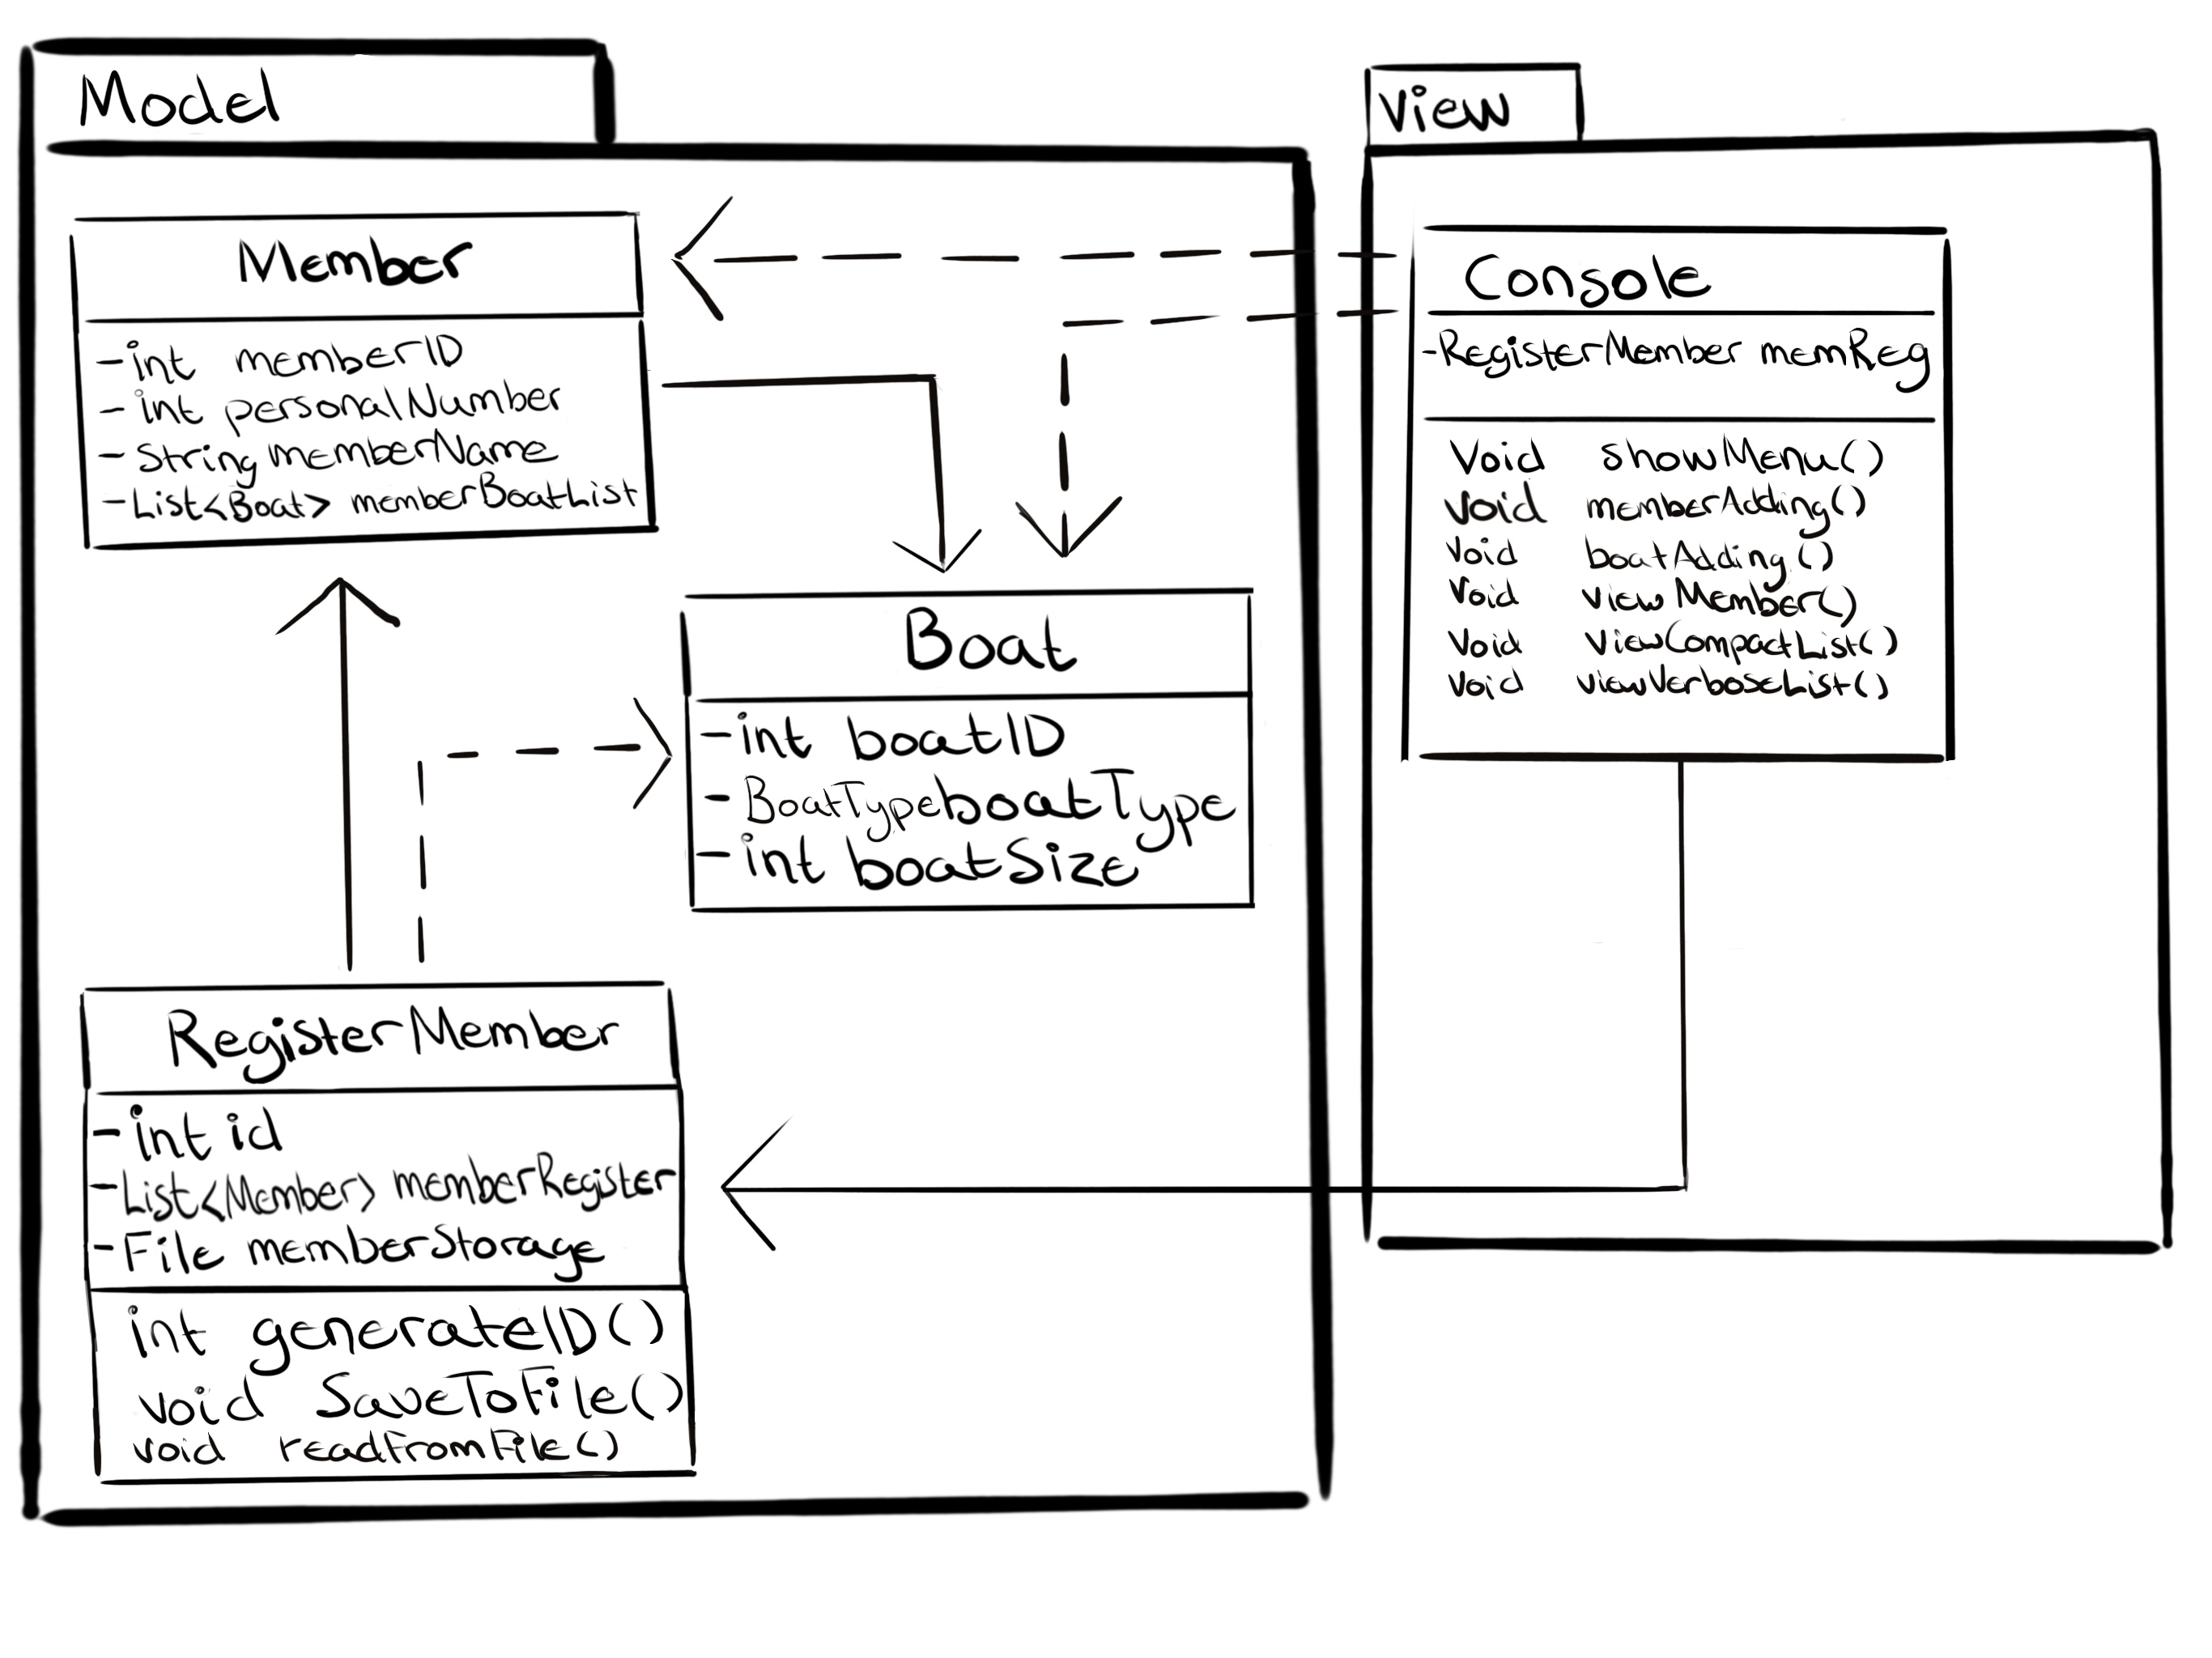 Model
Member
-int memberID
-int personalNumber
-String memberName
-List<Boat> memberBoatList
Boat
-int boatID
-BoatType boatType
-int boatSize
RegisterMember
-int id
-List<Member> memberRegister
-File memberStorage
int generateID()
void SaveToFile()
void readFromFile()
View
Console
-RegisterMember memReg
Void showMenu()
Void memberAdding()
Void boatAdding()
Void viewMember()
Void viewCompactList()
Void viewVerboseList()